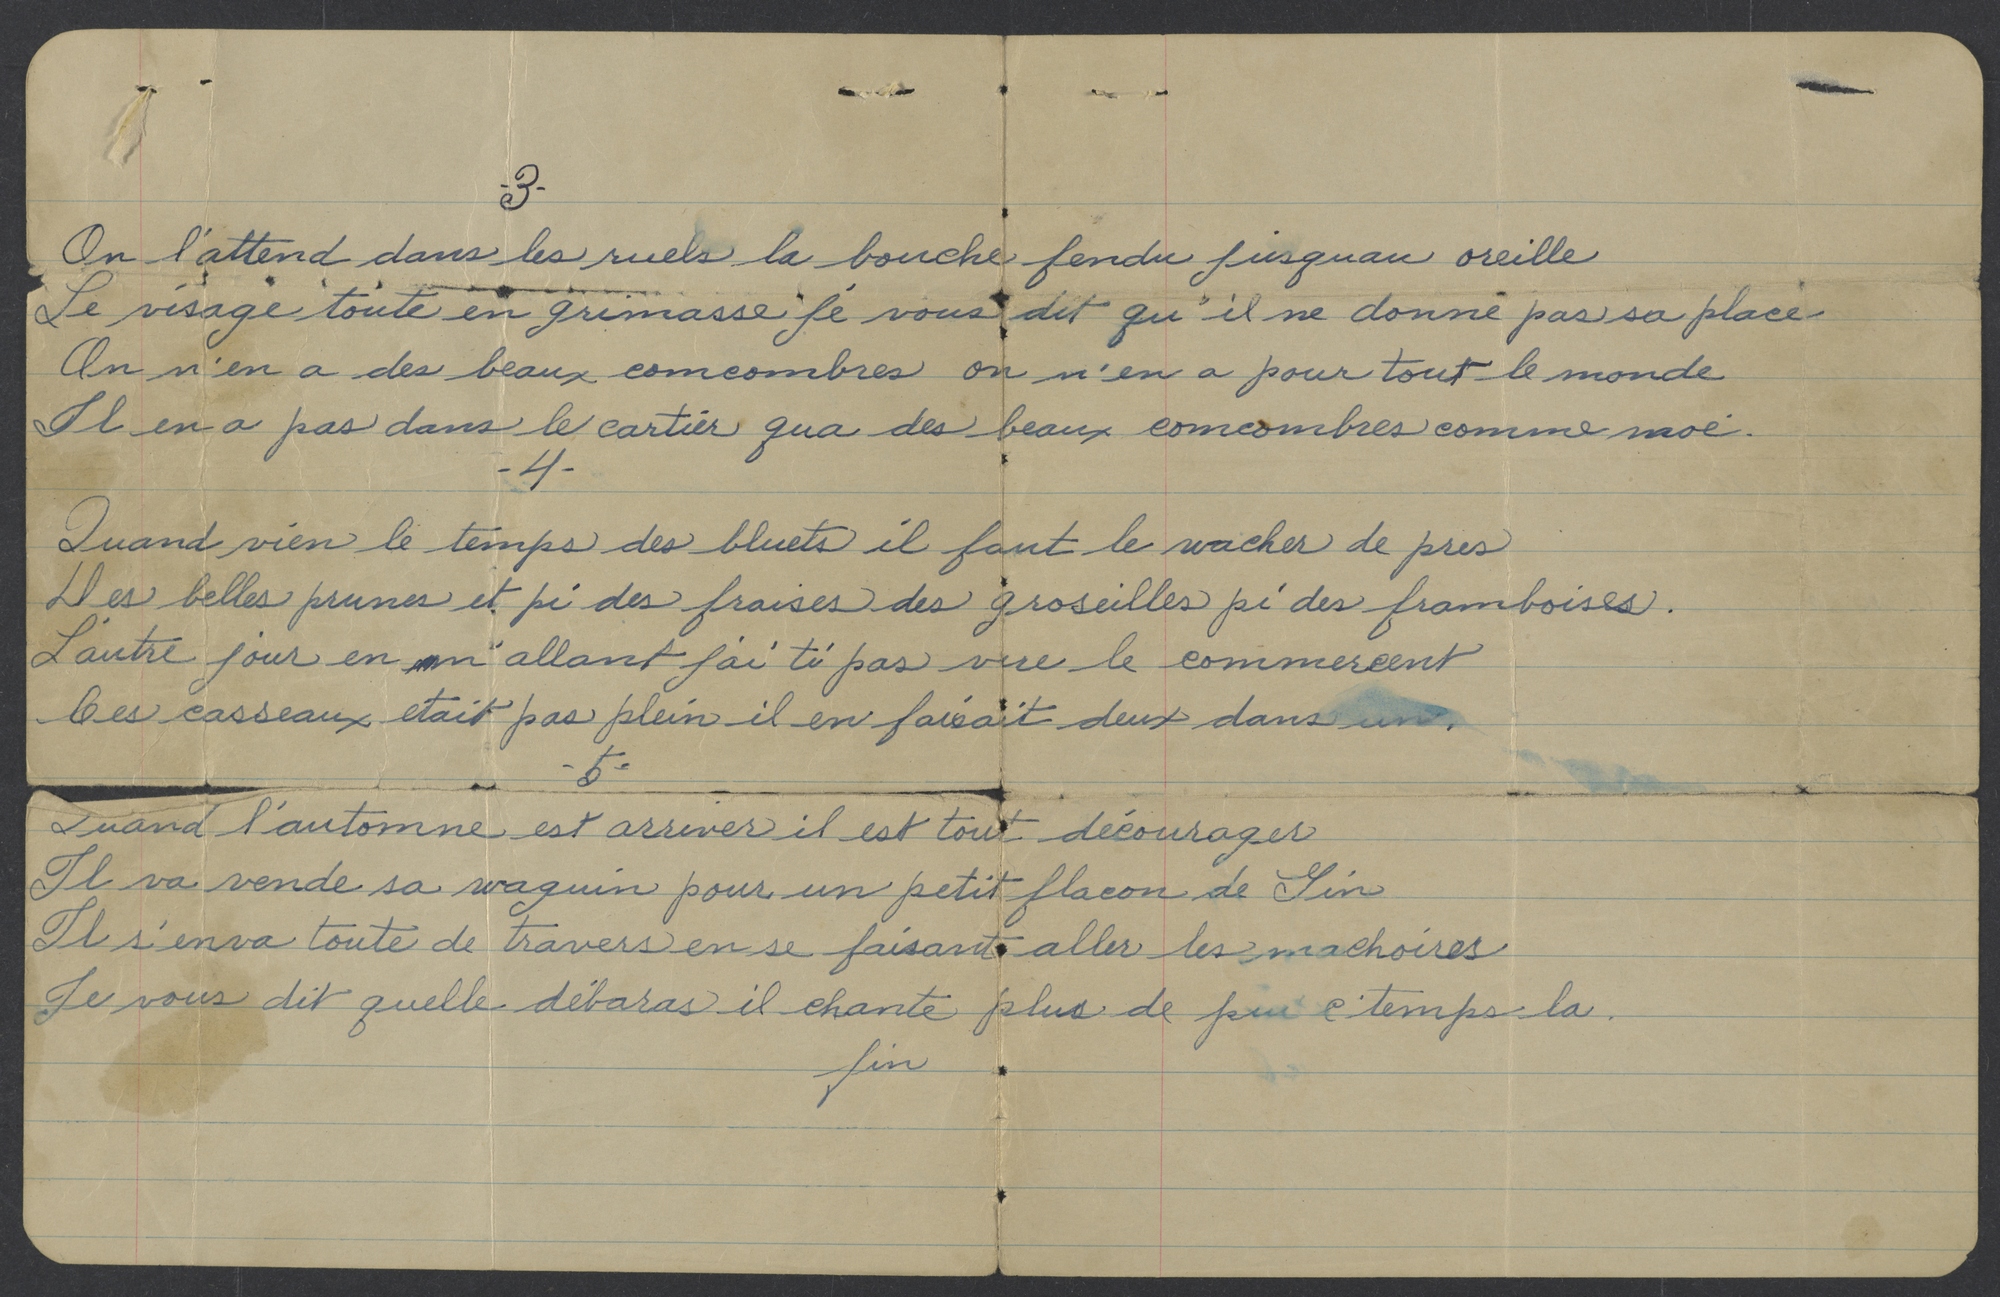 -3-
On l'attend dans les ruels la bouche fendu jusquau oreille
Le visage toute en grimasse je vous dit qu'il ne donne pas sa place
On n'en a des beaux comcombres on n'en a pour tout le monde
Il en a pas dans le cartier qua des beaux comcombres comme moé.
-4-
Quand vien le temps des bluets il faut le wacher de pres
Des belles prunes et pi des fraises des groseilles pi des framboises.
L'autre jour en m'allant j'ai ti pas vue le commercent
Ces casseaux etait pas plein il en faisait deux dans un.
-5-
Quand l'automne est arriver il est tout décourager
Il va vende sa waguin pour un petit flacon de Gin
Il s'enva toute de travers en se faisant aller les machoires
Je vous dit quelle débaras il chante plus de pui c'temps la.
fin